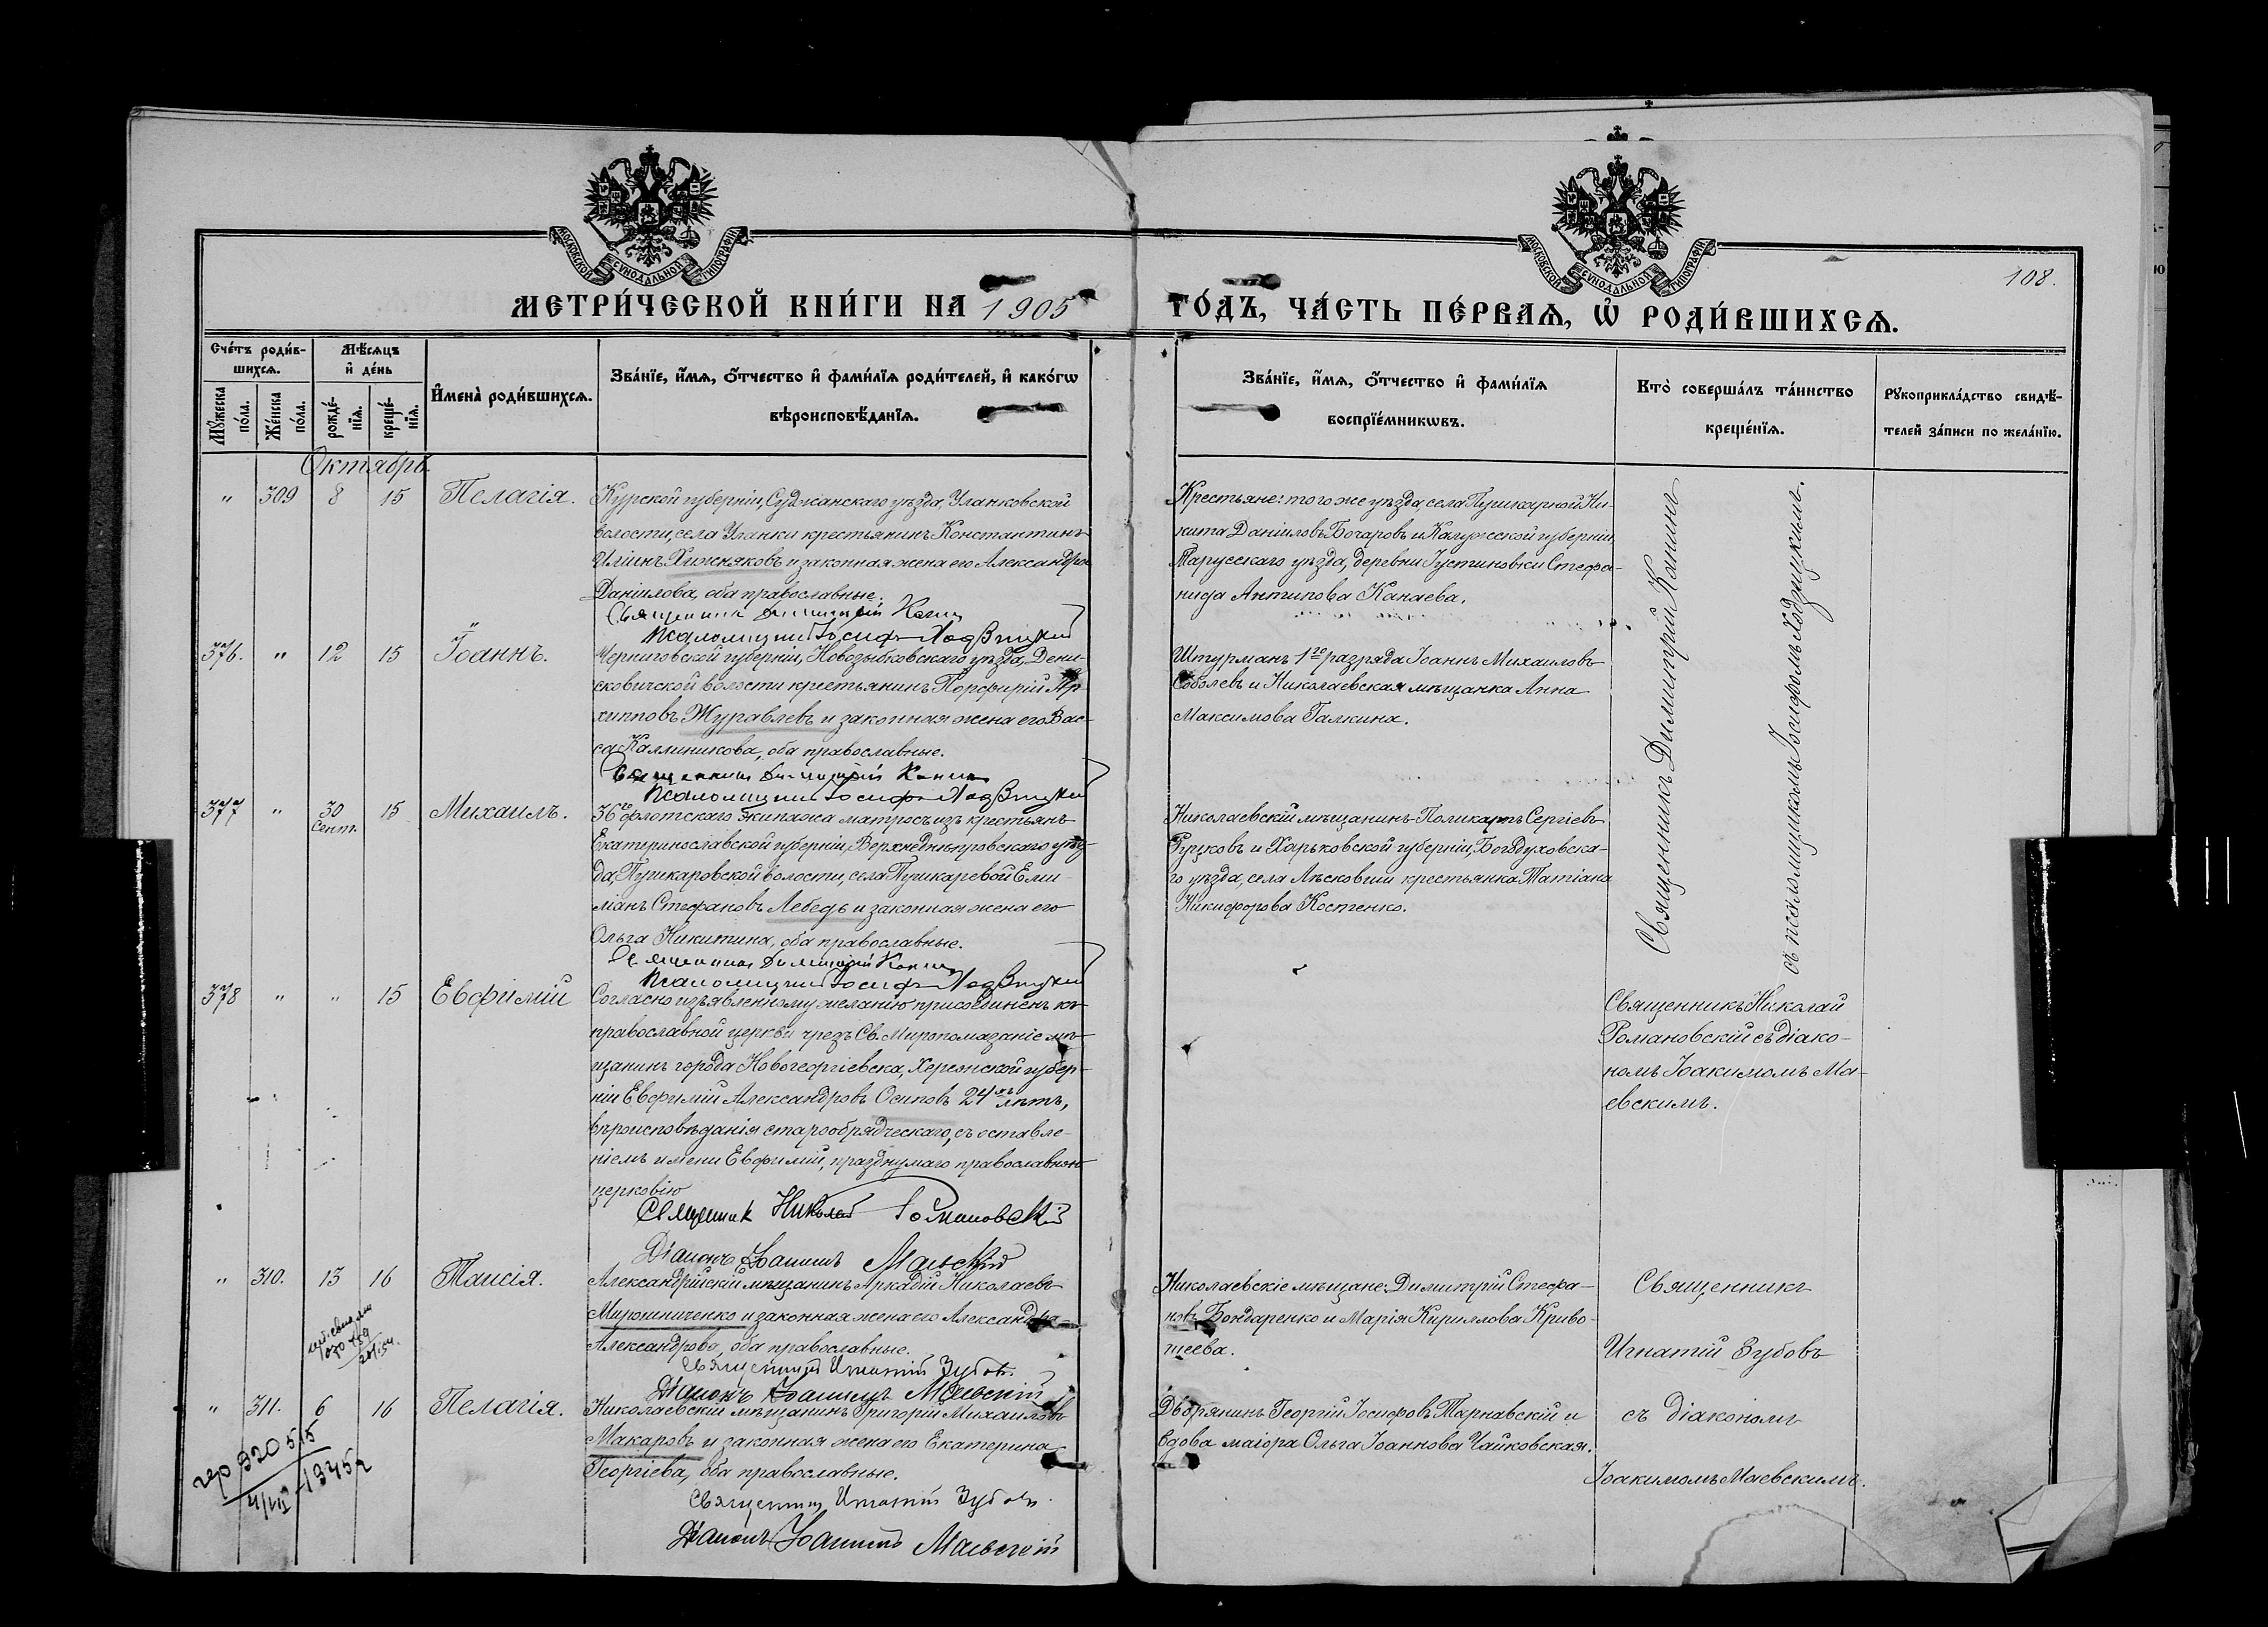 МОСКОВСКОЙ СѴНОДАЛЬНОЙ ТИПОГРАФІИ
МОСКОВСКОЙ СѴНОДАЛЬНОЙ ТИПОГРАФІИ
108.
МЕТРИ́ЧЕСКОЙ КНИ́ГИ НА 1905
ГО́ДЪ, ЧА́СТЬ ПЕ́РВАѦ, Ѡ҆ РОДИ́ВШИХСѦ.
Сче́тъ роди́в-
шихсѧ.
Мѣ́сѧцъ
и҆ де́нь
Мꙋ́жеска
по́ла.
Же́нска
по́ла.
рожде́-
нїѧ.
креще́-
нїѧ.
И҆мена̀ роди́вшихсѧ.
Зва́нїе, и҆́мѧ, ѻ҆́тчество и҆ фами́лїѧ роди́телей, и҆ како́гѡ
вѣроисповѣ́данїѧ.
Зва́нїе, и҆́мѧ, ѻ҆́тчество и҆ фами́лїѧ
воспрїе́мникѡвъ.
Кто̀ соверша́лъ та́инство
креще́нїѧ.
Рꙋкоприкла́дство свидѣ́-
телей за́писи по жела́нїю.
Октябрь.
" 309 8 15 Пелагія.
Курской губерніи, Суджанскаго уѣзда, Уланковской
волости, села Уланки крестьянинъ Константинъ
Иліинъ Хижняковъ и законная жена его Александра
Даніилова, оба православные.
Священникъ Димитрій Канинъ
Псаломщикъ Іосифъ Ходзицкій
Крестьяне: того же уѣзда, села Пушкарной Ни-
кита Даніиловъ Бочаровъ и Калужской губерніи
Тарусскаго уѣзда, деревни Густиновки Стефа-
нида Антипова Канаева.
Священникъ Димитрій Канинъ
съ псаломщикомъ Іосифомъ Ходзицкимъ.
376. " 12 15 Іоаннъ.
Черниговской губерніи, Новозыбковскаго уѣзда, Дени-
сковичской волости крестьянинъ Порфирій Ар-
хипповъ Журавлевъ и законная жена его Вас-
са Каллиникова, оба православные.
Священникъ Димитрій Канинъ
Псаломщикъ Іосифъ Ходзицкій
Штурманъ 1го разряда Іоаннъ Михаиловъ
Соболевъ и Николаевская мѣщанка Анна
Максимова Галкина.
377 " 30 Сент. 15 Михаилъ.
36го флотскаго экипажа матросъ изъ крестьянъ
Екатеринославской губерніи, Верхнеднѣпровскаго уѣз-
да, Пушкаровской волости, села Пушкаревой Еми-
ліанъ Стефановъ Лебедь и законная жена его
Ольга Никитина, оба православные.
Священникъ Димитрій Канинъ
Псаломщикъ Іосифъ Ходзицкій
Николаевскій мѣщанинъ Поликарпъ Сергіевъ
Гуцковъ и Харьковской губерніи, Богодуховска-
го уѣзда, села Лѣсковки крестьянка Татіана
Никифорова Костенко.
378 " " 15 Евфимій
Согласно изъявленному желанію присоединенъ къ
православной церкви чрезъ Св. Миропомазаніе мѣ-
щанинъ города Новогеоргіевска, Херсонской губер-
ніи Евфимій Александровъ Осиповъ 24хъ лѣтъ,
вѣроисповѣданія старообрядческаго, съ оставле-
ніемъ имени Евфимій, празднуемаго православною
церковію
Священникъ Николай Романовскій
Діаконъ Іоакимъ Маевскій
Священникъ Николай
Романовскій съ діако-
номъ Іоакимомъ Ма-
евскимъ.
" 310. 13 16 Таисія.
Александрійскій мѣщанинъ Аркадій Николаевъ
Мирошниченко и законная жена его Александра
Александрова, оба православные.
Священникъ Игнатій Зубовъ
Діаконъ Іоакимъ Маевскій
Николаевскіе мѣщане: Димитрій Стефа-
новъ Бондаренко и Марія Кириллова Криво-
шеева.
Священникъ
Игнатій Зубовъ
съ діакономъ
Іоакимомъ Маевскимъ.
" 311. 6 16 Пелагія.
Николаевскій мѣщанинъ Григорій Михаиловъ
Макаровъ и законная жена его Екатерина
Георгіева, оба православные.
Священникъ Игнатій Зубовъ
Діаконъ Іоакимъ Маевскій
Дворянинъ Георгій Іосифовъ Тарнавскій и
вдова маіора Ольга Іоаннова Чайковская.